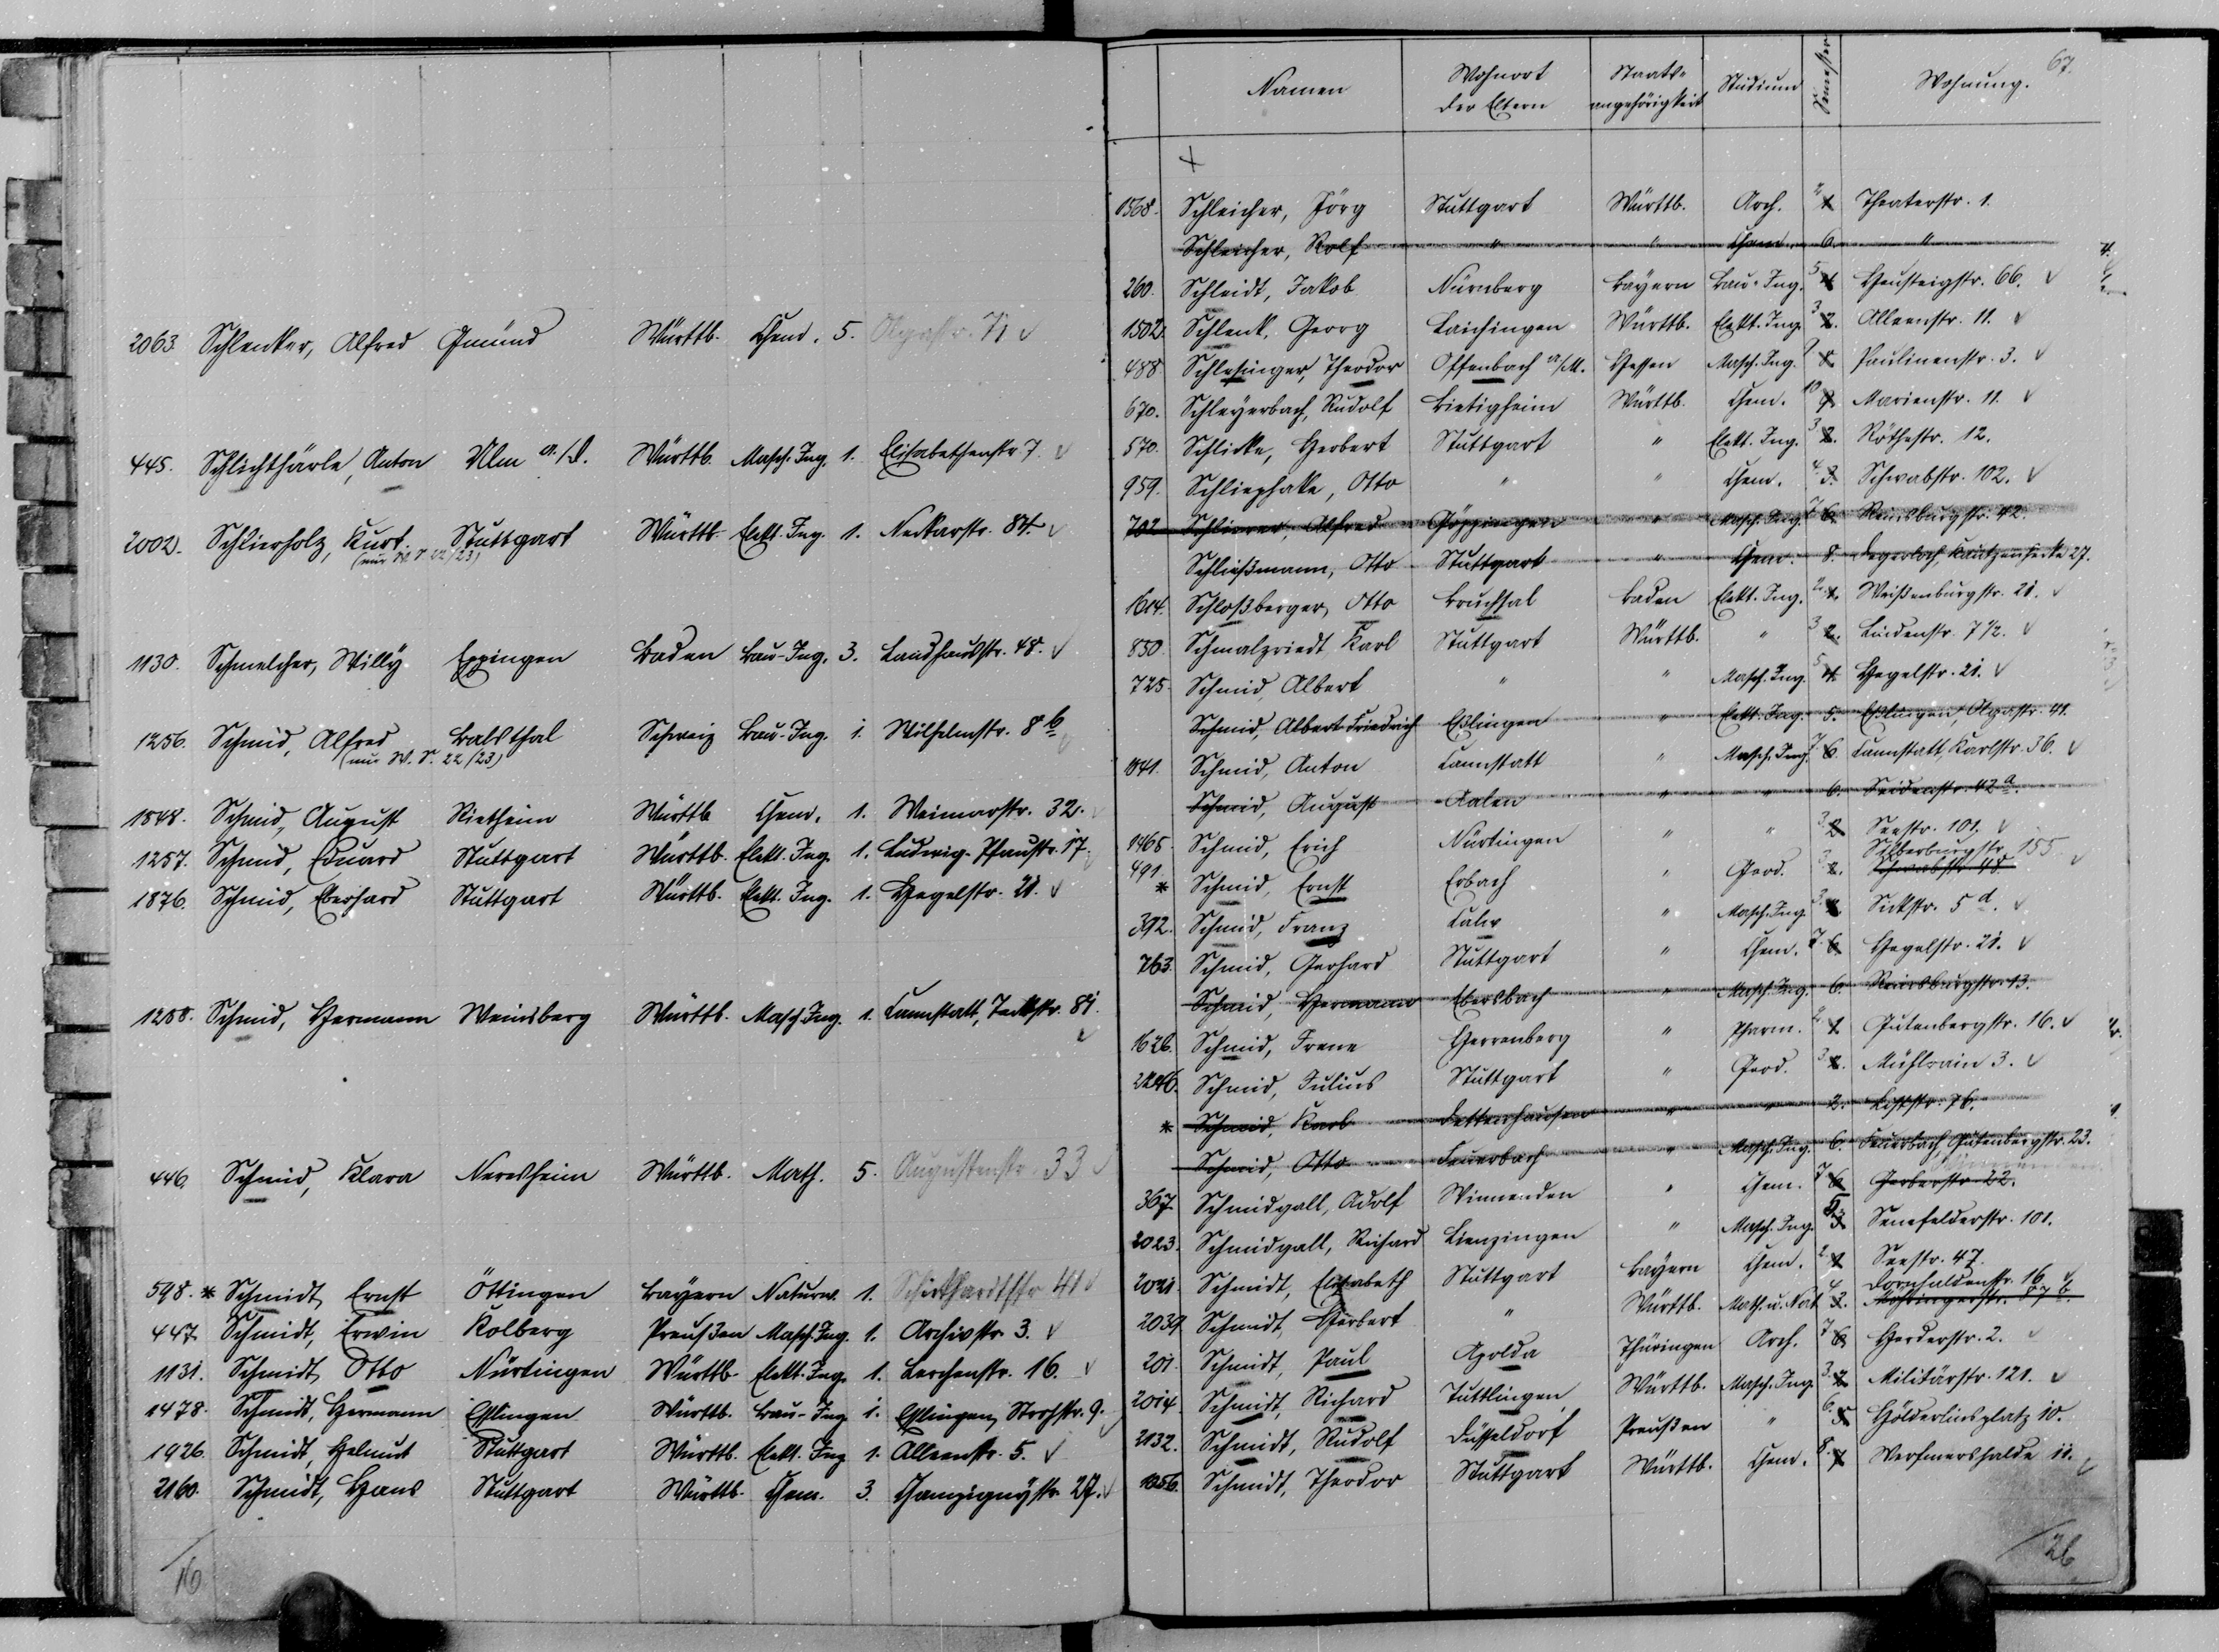 2063. Schlenker, Alfred Gmünd Württb. Chem. 5. Olgastr. 71
445. Schlichthärle, Anton Ulm a./D. Württb. Masch. Ing. 1. Elisabethenstr. 7.
2002. Schlierholz, Kurt. Stuttgart Württb. Elekt. Ing. 1. Neckarstr. 84.
(nur W. S. 22/23)
1130. Schmelcher, Willy Eppingen Baden Bau-Ing. 3. Landhausstr. 48.
1256. Schmid, Alfred Balsthal Schweiz Bau-Ing. 1. Wilhelmstr. 8 b
(nur W. S. 22/23)
1548. Schmid, August Rietheim Württb. Chem. 1. Weimarstr. 32.
1257. Schmid, Eduard Stuttgart Württb. Elekt. Ing. 1. Ludwig-Pfaustr. 17.
1876. Schmid, Eberhard Stuttgart Württb. Elekt. Ing. 1. Hegelstr. 21.
1258. Schmid, Hermann Weinsberg Württb. Masch. Ing. 1. Cannstatt, Teckstr. 81.
446. Schmid, Klara Neresheim Württb. Math. 5. Augustenstr. 33
598. * Schmidt, Ernst Öttingen Bayern Naturw. 1. Schickhardtstr 41
447 Schmidt, Erwin Kolberg Preußen Masch. Ing. 1. Archivstr. 3.
1131. Schmidt, Otto Nürtingen Württb. Elekt. Ing. 1. Lerchenstr. 16.
1478. Schmidt, Hermann Eßlingen Württb. Bau-Ing. 1. Eßlingen, Strohstr. 9.
1926. Schmidt, Helmut Stuttgart Württb. Elekt. Ing. 1. Alleenstr. 5.
2160. Schmidt, Hans Stuttgart Württb. Chem. 3. Champignystr. 27.
16
67.
Namen Wohnort der Eltern Staatsangehörigkeit Studium Semester Wohnung.
1568. Schleicher, Jörg Stuttgart Württb. Arch. 2 1 Theaterstr. 1.
Schleicher, Rolf " " Chem. 6. "
260. Schleidt, Jakob Nürnberg Bayern Bau-Ing. 5 4 Heusteigstr. 66.
1502. Schlenk, Georg Laichingen Württb. Elekt. Ing. 3 2. Alleenstr. 11.
488 Schlesinger, Theodor Offenbach a/M. Hessen Masch. Ing. 9 8 Paulinenstr. 3.
670. Schleyerbach, Rudolf Bietigheim Württb. Chem. 10 9 Marienstr. 11.
570. Schlicke, Herbert Stuttgart " Elekt. Ing. 3 2. Röthestr. 12.
959. Schliephake, Otto " " Chem. 4. 3. Schwabstr. 102.
702 Schlierer, Alfred Göppingen " Masch. Ing. 7 6. Reinsburgstr. 42.
Schließmann, Otto Stuttgart " Chem. 8. Degerloch, 27.
1614. Schloßberger, Otto Bruchsal Baden Elekt. Ing. 2 1. Weißenburgstr. 21.
830. Schmalzriedt Karl Stuttgart Württb. " 3 2. Lindenstr. 7 1/2.
725. Schmid, Albert " " Masch. Ing. 5 4. Hegelstr. 21.
Schmid, Albert Friedrich Eßlingen " Elekt. Ing. 5. Eßlingen, Olgastr. 41.
1041. Schmid, Anton Cannstatt " Masch. Ing. 7. 6. Cannstatt, Karlstr. 36.
Schmid, August Aalen " " 6. Seidenstr. 42 a.
1465. Schmid, Erich Nürtingen " " 3. 2 Seestr. 101.
Silberburgstr. 155
491. * Schmid, Ernst Erbach " Geod. 3. 2. Schwabstr. 48
392. Schmid, Franz Calw " Masch. Ing. 3. 2. Seckstr. 5 d.
763. Schmid, Gerhard Stuttgart " Chem. 7. 6 Hegelstr. 21.
Schmid, Hermann Ebersbach " Masch. Ing. 6. Reinsburgstr. 13.
1626. Schmid, Irene Herrenberg " Pharm. 2. 1 Gutenbergstr. 16.
2246. Schmid, Julius Stuttgart " Geod. 3. 2. Mühlrain 3.
* Schmid, Karl Dettenhausen " " 2. Listtstr. 76.
Schmid, Otto Feuerbach " Masch. Ing. 6. Feuerbach, Gutenbergstr. 23.
367 Schmidgall, Adolf Winnenden " Chem. 7 6 Gerberstr. 22.
2023. Schmidgall, Richard Lienzingen " Masch. Ing. 5. 3 Senefelderstr. 101.
2021. Schmidt, Elisabeth Stuttgart Bayern Chem. 2. 1 Seestr. 47.
Dornhaldenstr. 16
2039 Schmidt, Herbert " Württb. Math. u. Nat 4. 3. 87 b.
201. Schmidt, Paul Apolda Thüringen Arch. 7 6 Herderstr. 2.
2014. Schmidt, Richard Tuttlingen Württb. Masch. Ing. 3. 2 Militärstr. 121.
2132. Schmidt, Rudolf Düsseldorf Preußen " 6. 5 Hölderlinsplatz 10.
1056. Schmidt, Theodor Stuttgart Württb. Chem. 8. 7 Werfmershalde 11.
26